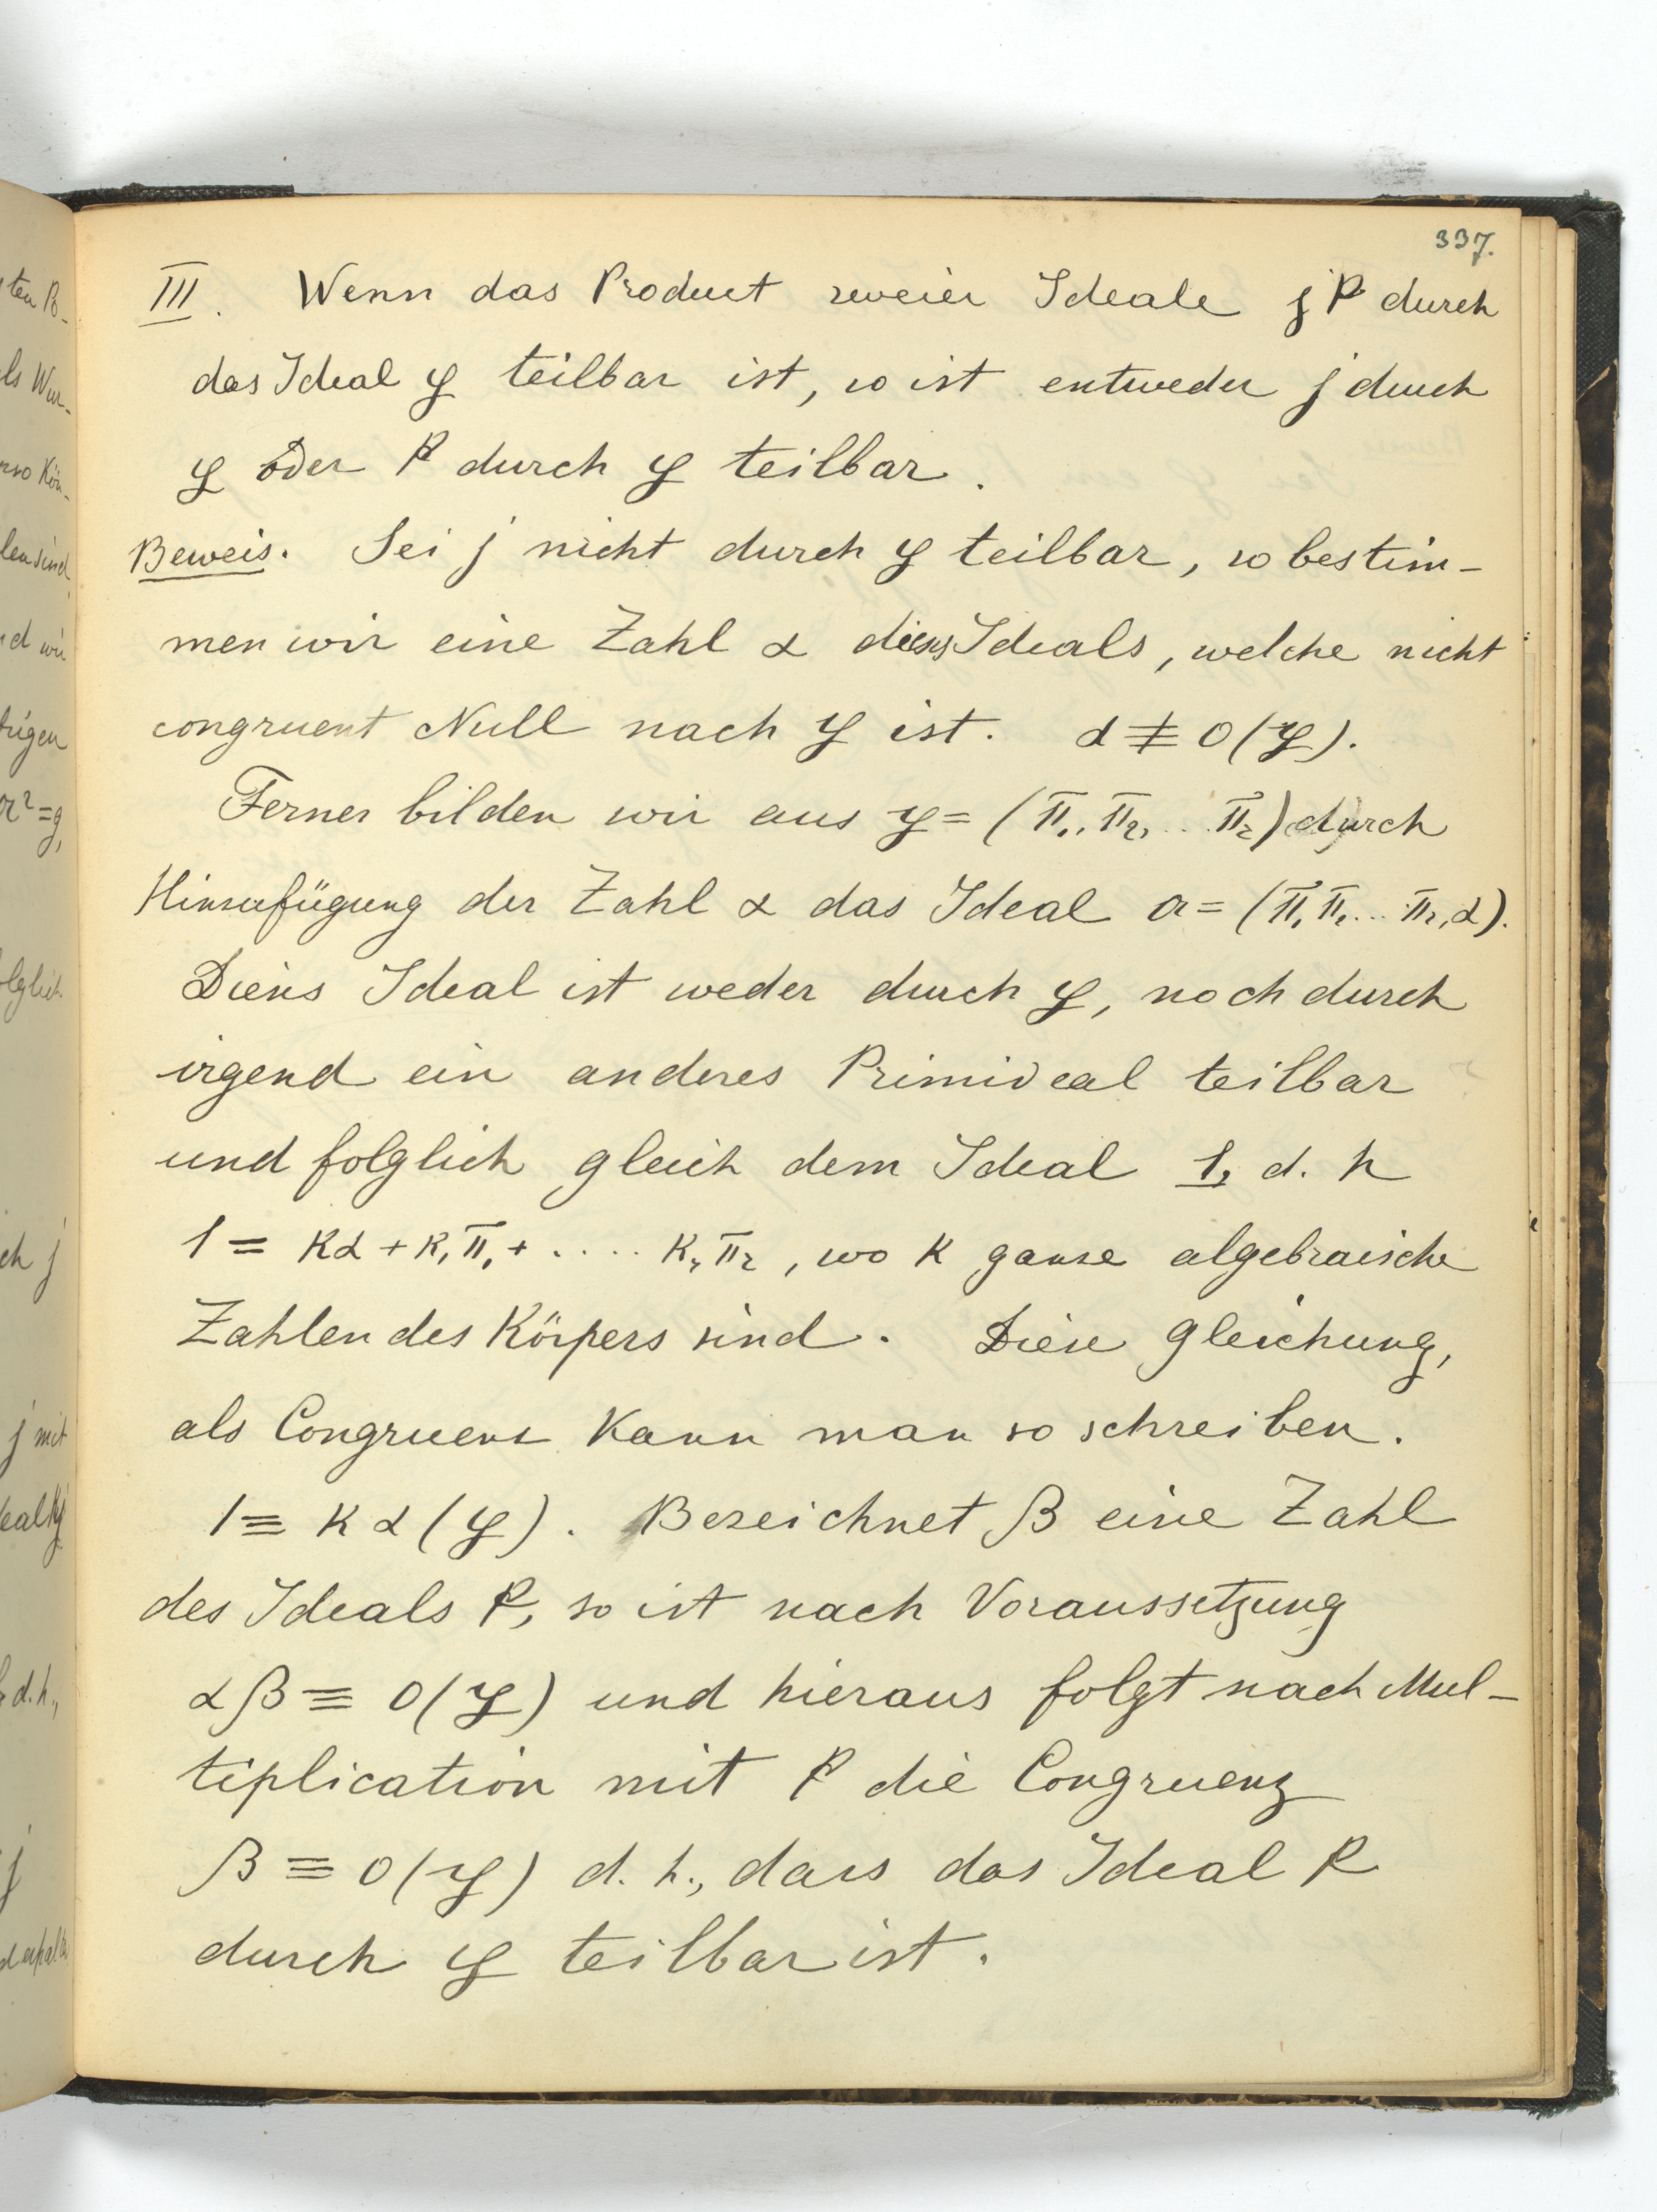 337.
III. Wenn das Product zweier Ideale j k durch
das Ideal 𝔭 teilbar ist, so ist entweder j durch
𝔭 oder k durch 𝔭 teilbar.
Beweis. Sei j nicht durch 𝔭 teilbar, so bestim-
men wir eine Zahl α dieses Ideals, welche nicht
congruent Null nach 𝔭 ist. α ≢ 0 (𝔭).
Ferner bilden wir aus 𝔭 = (π₁, π₂, .. π_r) durch
Hinzufügung der Zahl α das Ideal 𝔞 = (π₁ π₂ ... π_r, α).
Dieses Ideal ist weder durch 𝔭, noch durch
irgend ein anderes Primideal teilbar
und folglich gleich dem Ideal 1, d. h
1 = κα + κ₁π₁ + ..... κ_r π_r, wo κ ganze algebraische
Zahlen des Körpers sind. Diese Gleichung,
als Congruenz kann man so schreiben.
1 ≡ κα (𝔭). Bezeichnet β eine Zahl
des Ideals k, so ist nach Voraussetzung
αβ ≡ 0 (𝔭) und hieraus folgt nach Mul-
tiplication mit k die Congruenz
β ≡ 0 (𝔭) d. h., dass das Ideal k
durch 𝔭 teilbar ist.